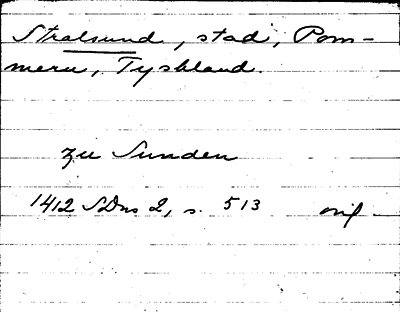 Stralsund, stad, Pom-
mern, Tyskland.
zu Sunden
1412 SDns 2, s. 513 orig